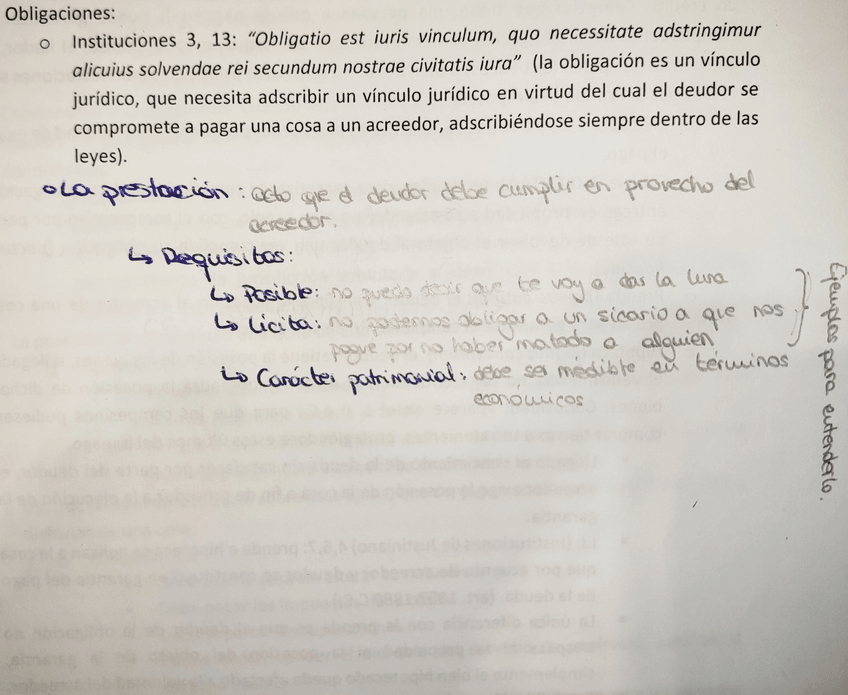 Obligaciones:
o Instituciones 3, 13: "Obligatio est iuris vinculum, quo necessitate adstringimur
alicuius solvendae rei secundum nostrae civitatis iura" (la obligación es un vínculo
jurídico, que necesita adscribir un vínculo jurídico en virtud del cual el deudor se
compromete a pagar una cosa a un acreedor, adscribiéndose siempre dentro de las
leyes).
o La prestación: acto que el deudor debe cumplir en provecho del
acreedor.
↳ Requisitos:
↳ Posible: no puedo decir que te voy a dar la luna
↳ Lícita: no podemos obligar a un sicario a que nos
pague por no haber matado a alguien
↳ Carácter patrimonial: debe ser medible en términos
económicos
Ejemplos para entenderlo.